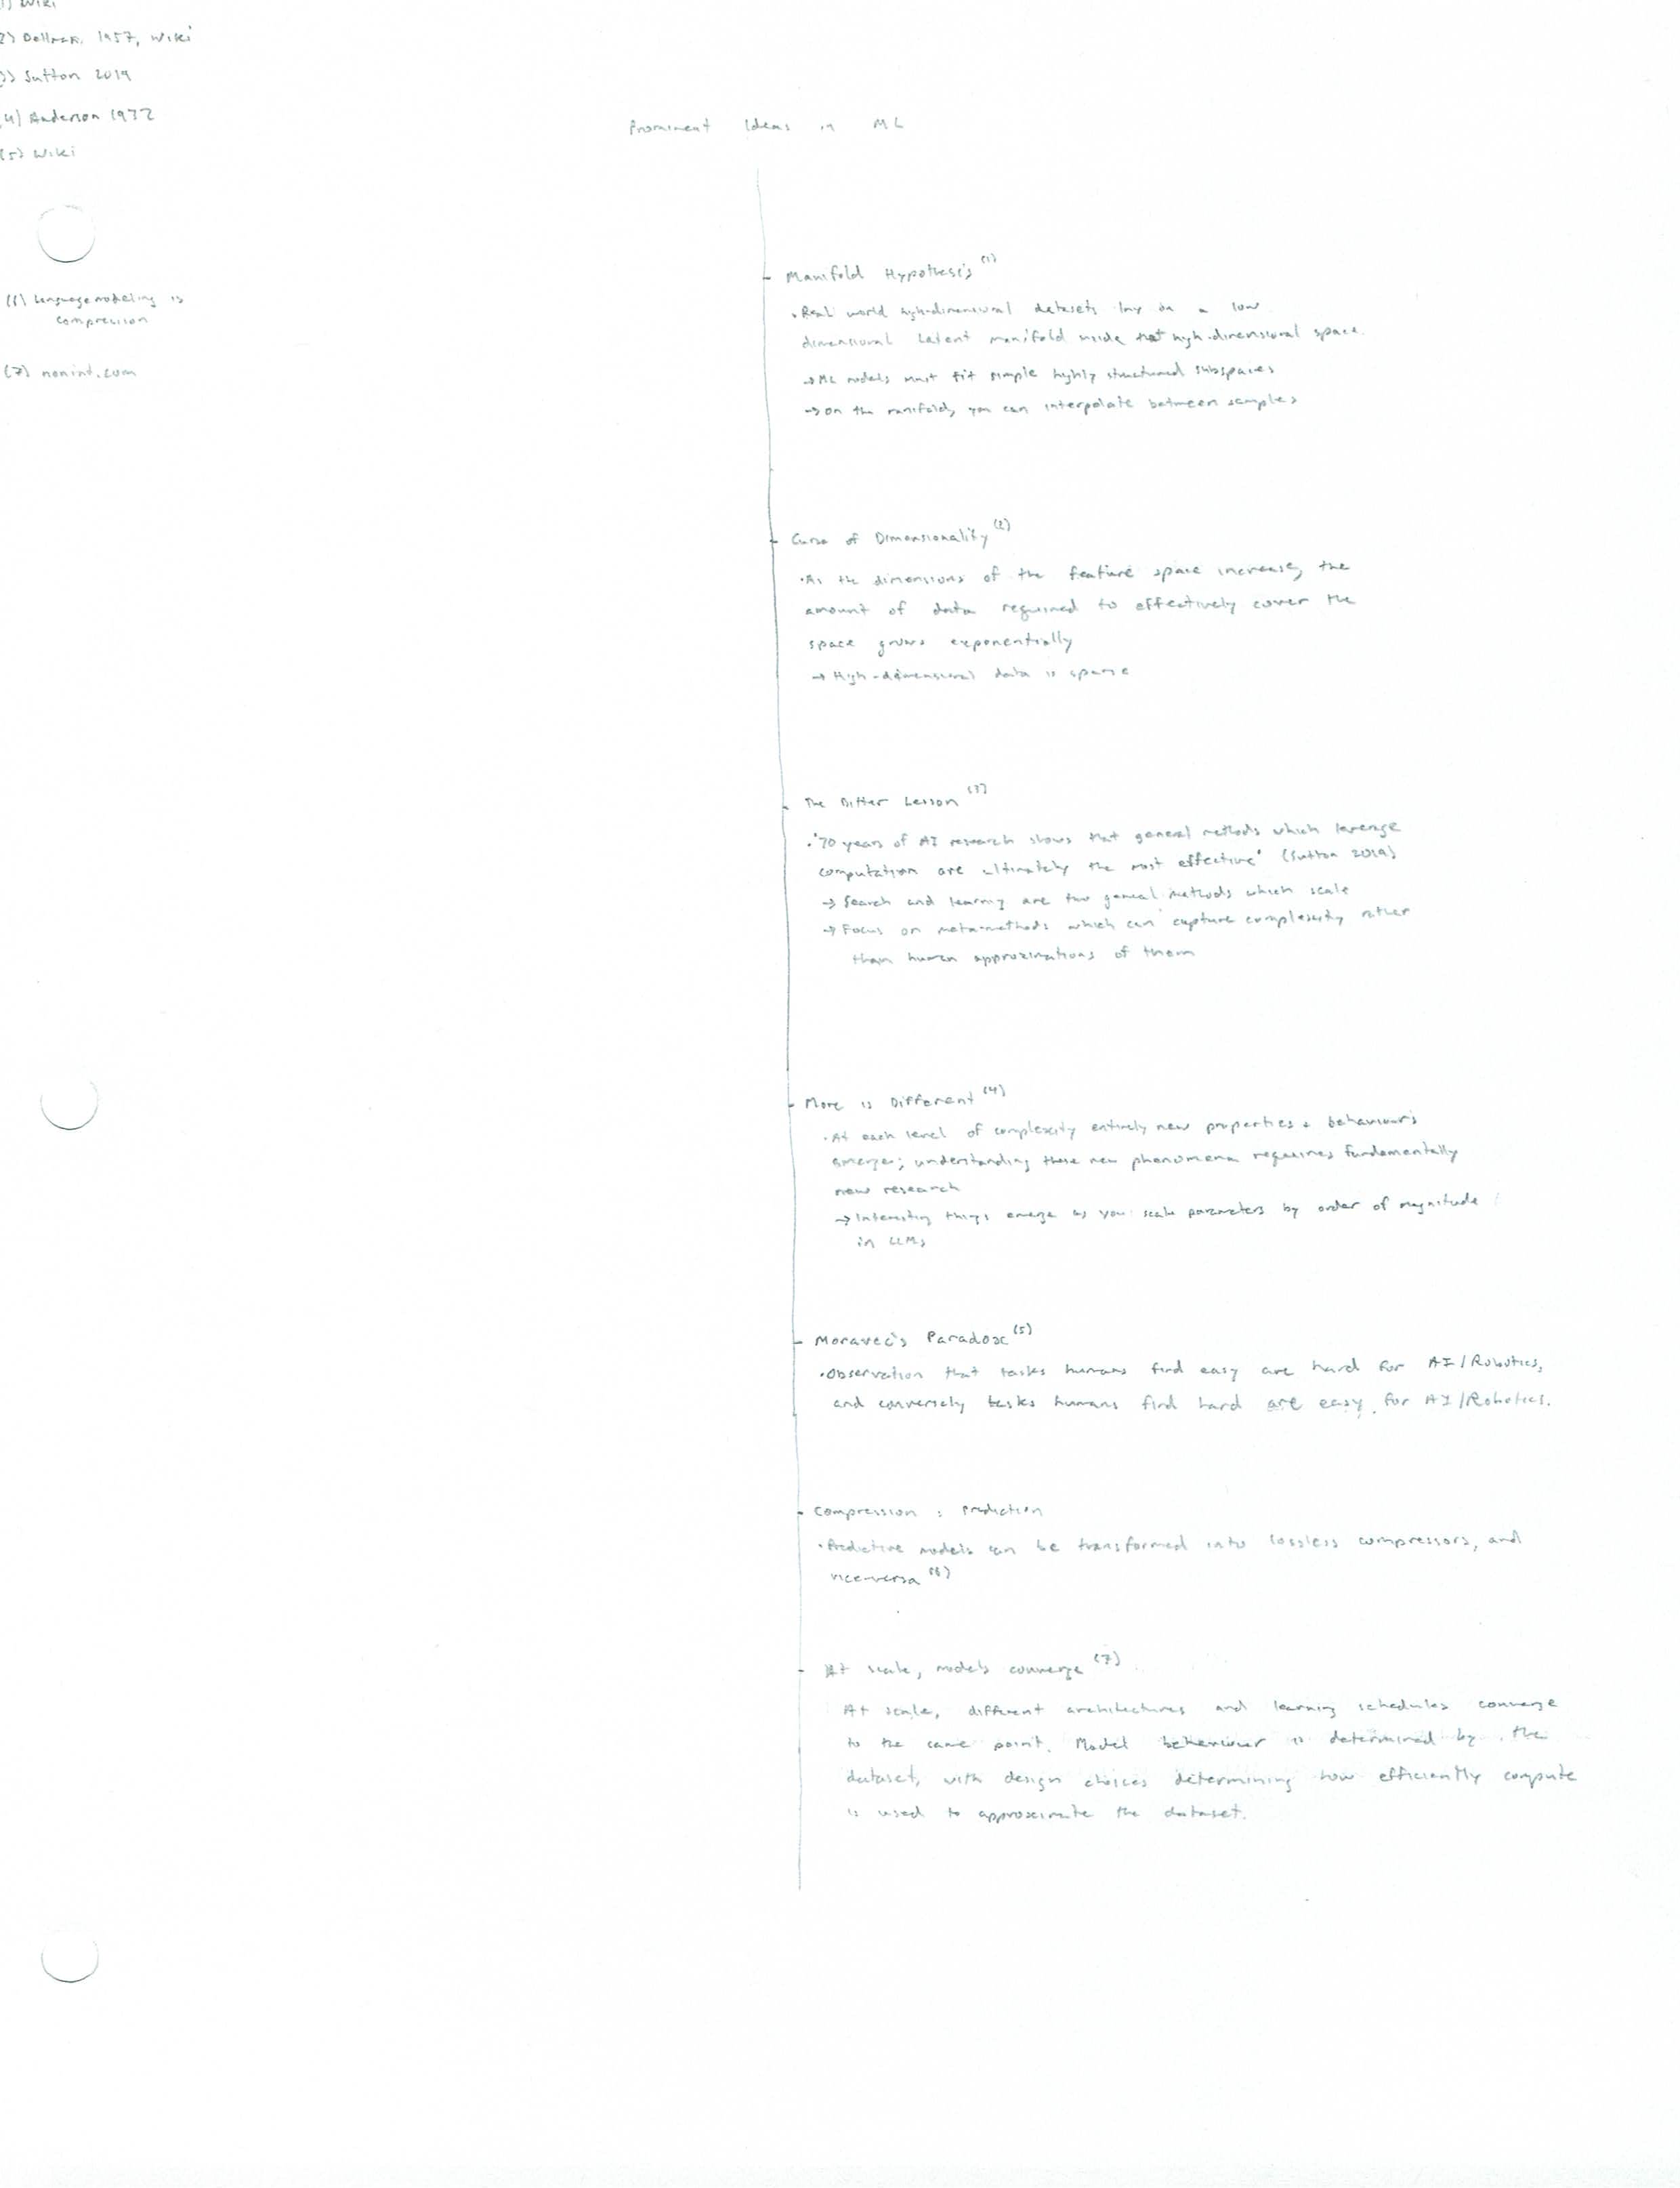 1) Wiki
2) Bellman, 1957, Wiki
3) Sutton 2019
4) Anderson 1972
(5) Wiki
(6) Language modeling is
compression
(7) nonint.com
Prominent Ideas in ML
- Manifold Hypothesis (1)
• Real world high-dimensional datasets lay on a low
dimensional latent manifold inside that high-dimensional space.
→ ML models must fit simple highly structured subspaces
→ on the manifold, you can interpolate between samples
- Curse of Dimensionality (2)
• As the dimensions of the feature space increase, the
amount of data required to effectively cover the
space grows exponentially
→ High-dimensional data is sparse
- The Bitter Lesson (3)
• "70 years of AI research shows that general methods which leverage
computation are ultimately the most effective" (Sutton 2019)
→ Search and learning are two general methods which scale
→ Focus on meta-methods which can capture complexity rather
than human approximations of them
- More is Different (4)
• At each level of complexity entirely new properties + behaviours
emerge; understanding these new phenomena requires fundamentally
new research
→ Interesting things emerge as you scale parameters by order of magnitude
in LLMs
- Moravec's Paradox (5)
• Observation that tasks humans find easy are hard for AI/Robotics,
and conversely tasks humans find hard are easy for AI/Robotics.
- Compression : Prediction
• Predictive models can be transformed into lossless compressors, and
vice-versa (6)
- At scale, models converge (7)
At scale, different architectures and learning schedules converge
to the same point. Model behaviour is determined by the
dataset, with design choices determining how efficiently compute
is used to approximate the dataset.